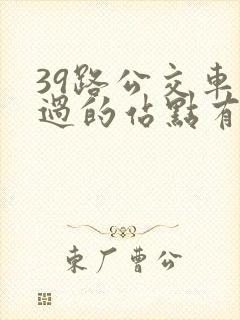 39路公交車
過的佔點有
東厂曹公